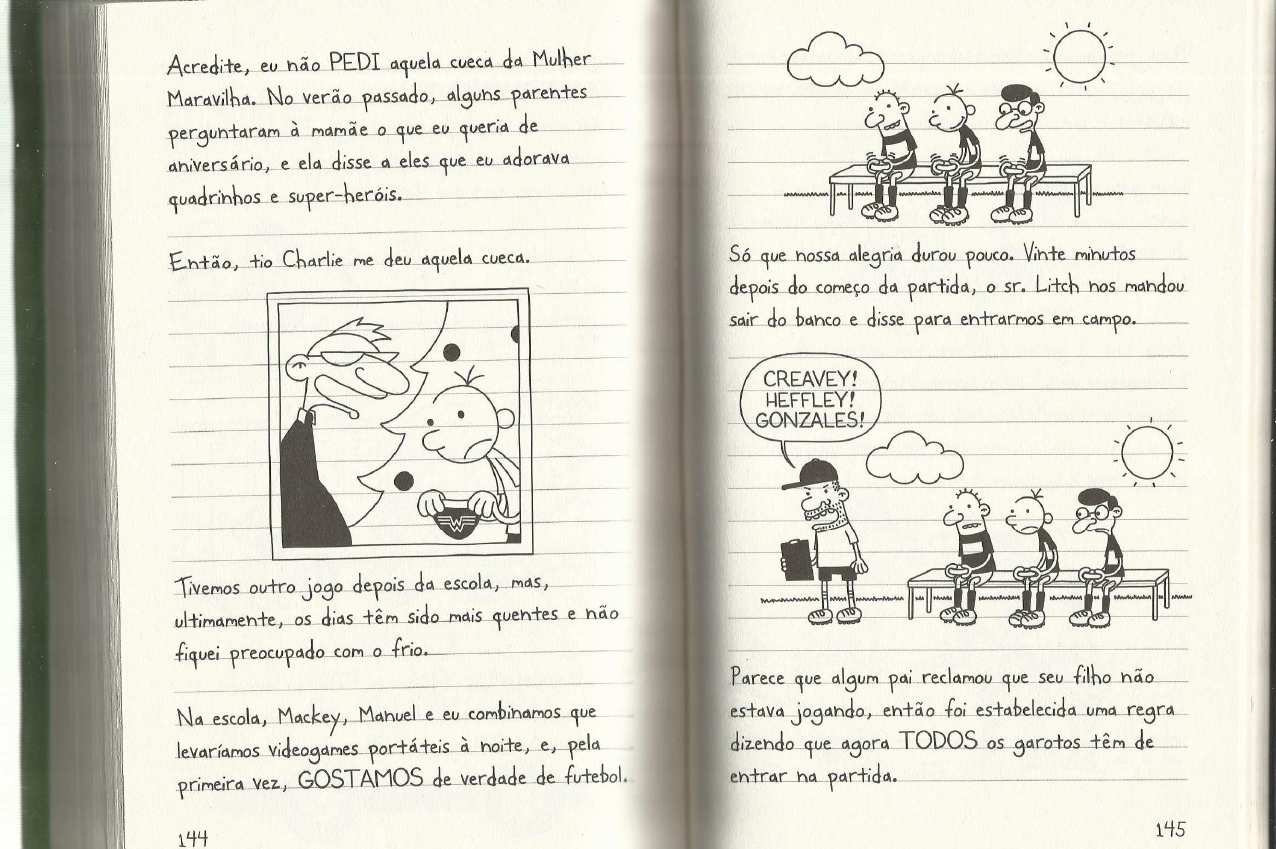 Acredite, eu não PEDI aquela cueca da Mulher
Maravilha. No verão passado, alguns parentes
perguntaram à mamãe o que eu queria de
aniversário, e ela disse a eles que eu adorava
quadrinhos e super-heróis.
Então, tio Charlie me deu aquela cueca.
W
Tivemos outro jogo depois da escola, mas,
ultimamente, os dias têm sido mais quentes e não
fiquei preocupado com o frio.
Na escola, Mackey, Manuel e eu combinamos que
levaríamos videogames portáteis à noite, e, pela
primeira vez, GOSTAMOS de verdade de futebol.
144
Só que nossa alegria durou pouco. Vinte minutos
depois do começo da partida, o sr. Litch nos mandou
sair do banco e disse para entrarmos em campo.
CREAVEY!
HEFFLEY!
GONZALES!
Parece que algum pai reclamou que seu filho não
estava jogando, então foi estabelecida uma regra
dizendo que agora TODOS os garotos têm de
entrar na partida.
145